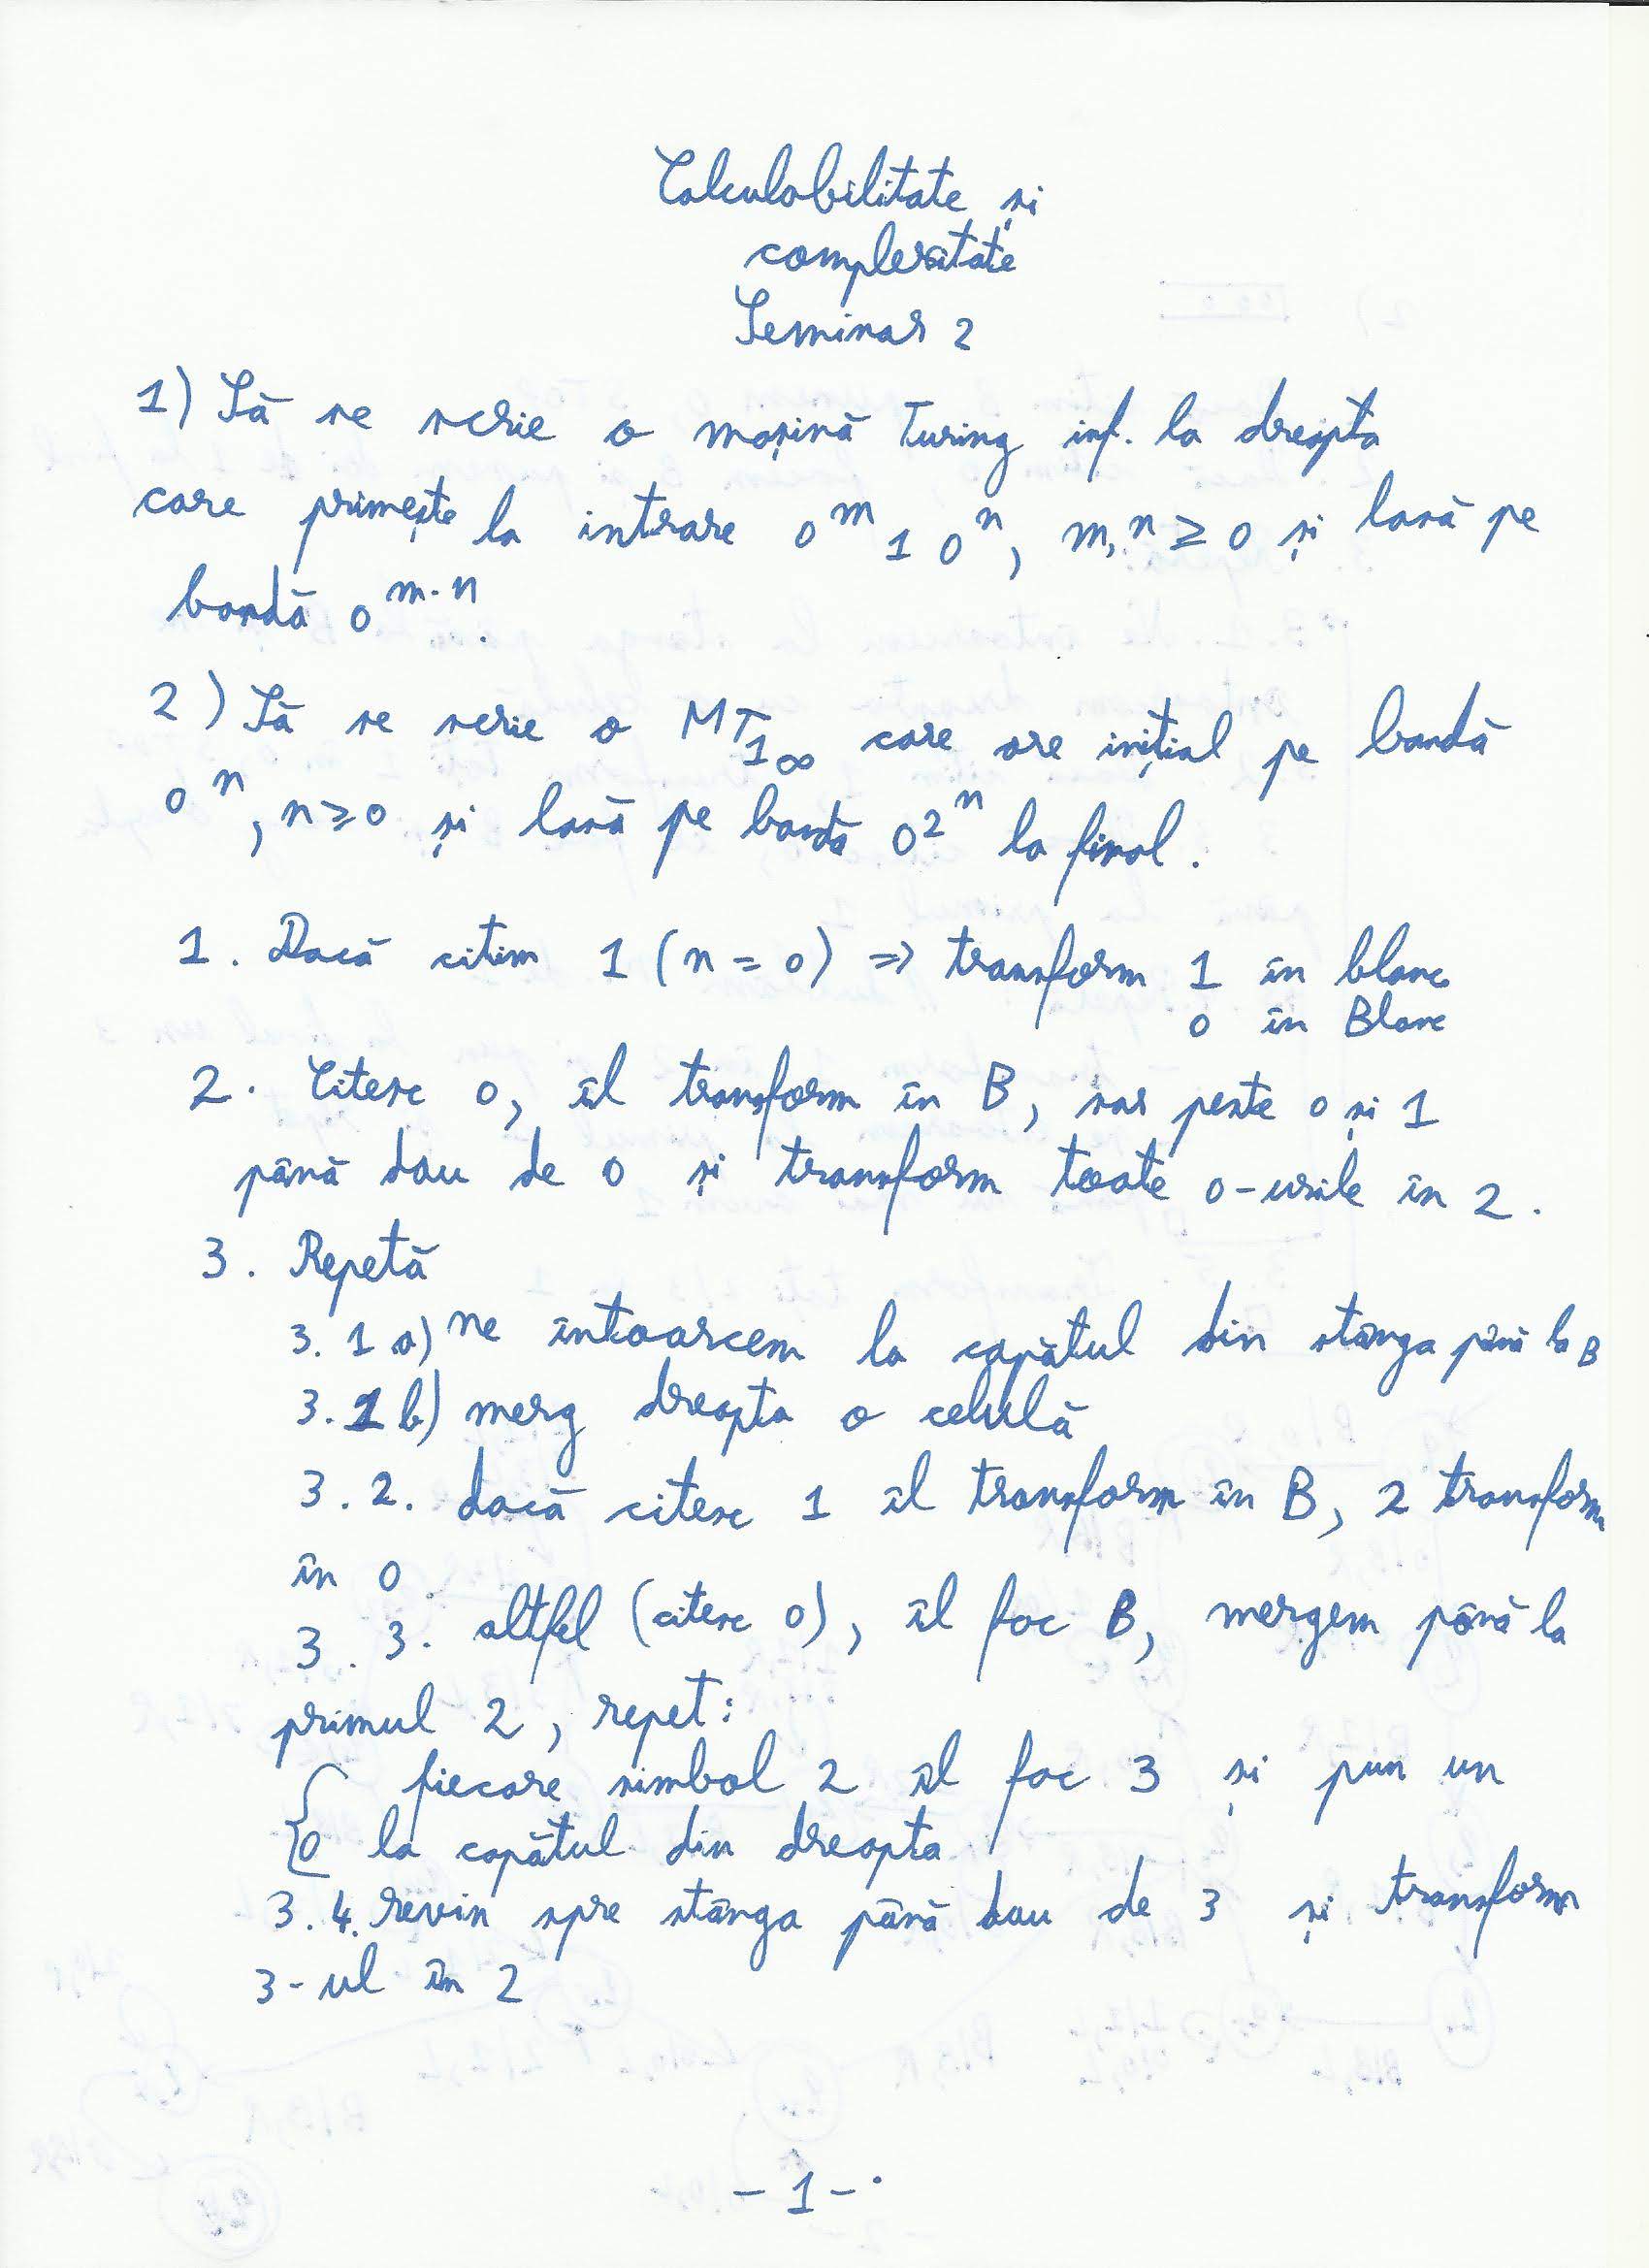 Calculabilitate și
complexitate
Seminar 2
1) Să se scrie o mașină Turing inf. la dreapta
care primește la intrare 0^m 1 0^n, m, n ≥ 0 și lasă pe
bandă 0^m·n.
2) Să se scrie o MT_1∞ care are inițial pe bandă
0^n, n ≥ 0 și lasă pe bandă 0^2^n la final.
1. Dacă citim 1 (n = 0) => transform 1 în blanc
0 în Blanc
2. Citesc 0, îl transform în B, sar peste 0 și 1
până dau de 0 și transform toate 0-urile în 2.
3. Repetă
3.1 a) ne întoarcem la capătul din stânga până la B
3.1 b) merg dreapta o celulă
3.2. dacă citesc 1 îl transform în B, 2 transform
în 0.
3.3. altfel (citesc 0), îl fac B, mergem până la
primul 2, repet:
{ fiecare simbol 2 îl fac 3 și pun un
0 la capătul din dreapta
3.4. revin spre stânga până dau de 3 și transform
3-ul în 2
- 1 -